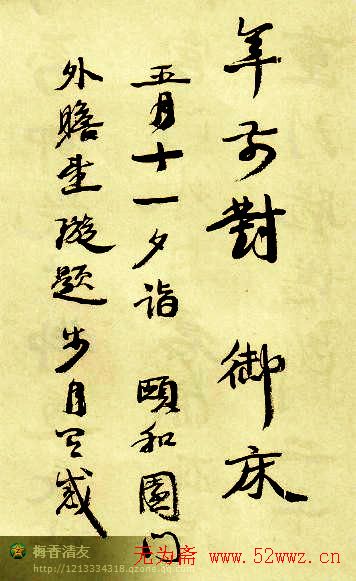 年前對 御床
五月十一夕詣 頤和園門
外瞻望璇題步月感
梅香清友
http://1213334318.qzone.qq.com
无为斋 www.52wwz.cn